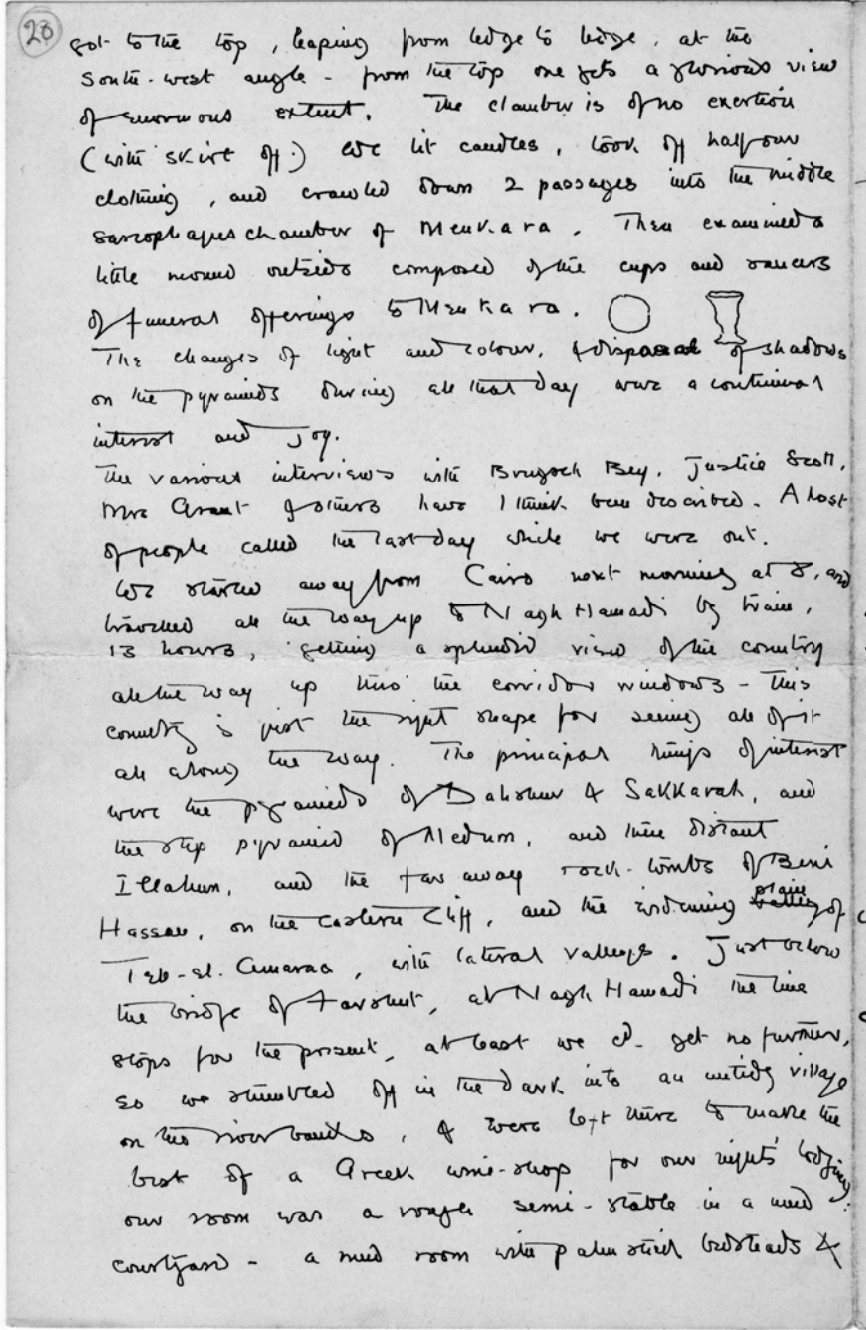 28
got to the top, leaping from ledge to ledge, at the
South-west angle - from the top one gets a glorious view
of enormous extent. The clamber is of no exertion
(with skirt off.) We lit candles, took off half our
clothing, and crawled down 2 passages into the middle
sarcophagus chamber of Menkara. Then examined a
little mound outside composed of the cups and saucers
of funeral offerings to Menkara.
The changes of light and colour, & disposal of shadows
on the pyramids during all that day were a continual
interest and joy.
The various interviews with Brugsch Bey, Justice Scott,
Mrs Grant & others have I think been described. A host
of people called the last day while we were out.
We started away from Cairo next morning at 8, and
travelled all the way up to Nagh Hamadi by train,
13 hours, getting a splendid view of the country
all the way up thro' the corridor windows - this
country is just the right shape for seeing all of it
all along the way. The principal things of interest
were the pyramids of Dahshur & Sakkarah, and
the step pyramid of Medum, and then distant
Illahun, and the far away rock-tombs of Beni
Hassan, on the Eastern Cliff, and the widening plain of
Tell-el-Amarna, with lateral valleys. Just below
the bridge of Farshut, at Nagh Hamadi the line
stops for the present, at least we cd. get no further,
so we stumbled off in the dark into an untidy village
on the river banks, & were left there to make the
best of a Greek wine-shop for our nights' lodging:
our room was a rough semi-stable in a mud
courtyard - a mud room with palm stick bedsteads &